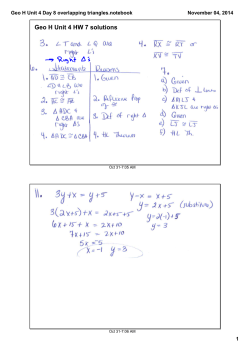 Geo H Unit 4 Day 8 overlapping triangles.notebook
November 04, 2014
Geo H Unit 4 HW 7 solutions
3. ∠T and ∠Q are right ∠s
→ Right Δs
4. RX ≅ RT or
RV ≅ TV
6. Statements Reasons
1. AD ≅ CB
∠D + ∠B are right ∠s
1. Given
2. AC ≅ AC
2. Reflexive Prop
3. ΔADC + ΔCBA are right Δs
3. Def of right Δ
4. ΔADC ≅ ΔCBA
4. HL Theorem
7.
a) Given
b) Def of ⊥ lines
c)
d) Given
e) LJ ≅ LJ
f) HL Th.
Oct 31-7:05 AM
11. 3y+x = y+5
y-x = x+5
y = 2x+5 (substitute)
3(2x+5)+x = 2x+5+5
y = 2(-1)+5
6x+15+x = 2x+10
y = 3
7x+15 = 2x+10
5x = -5
x = -1 y = 3
Oct 31-7:06 AM
1